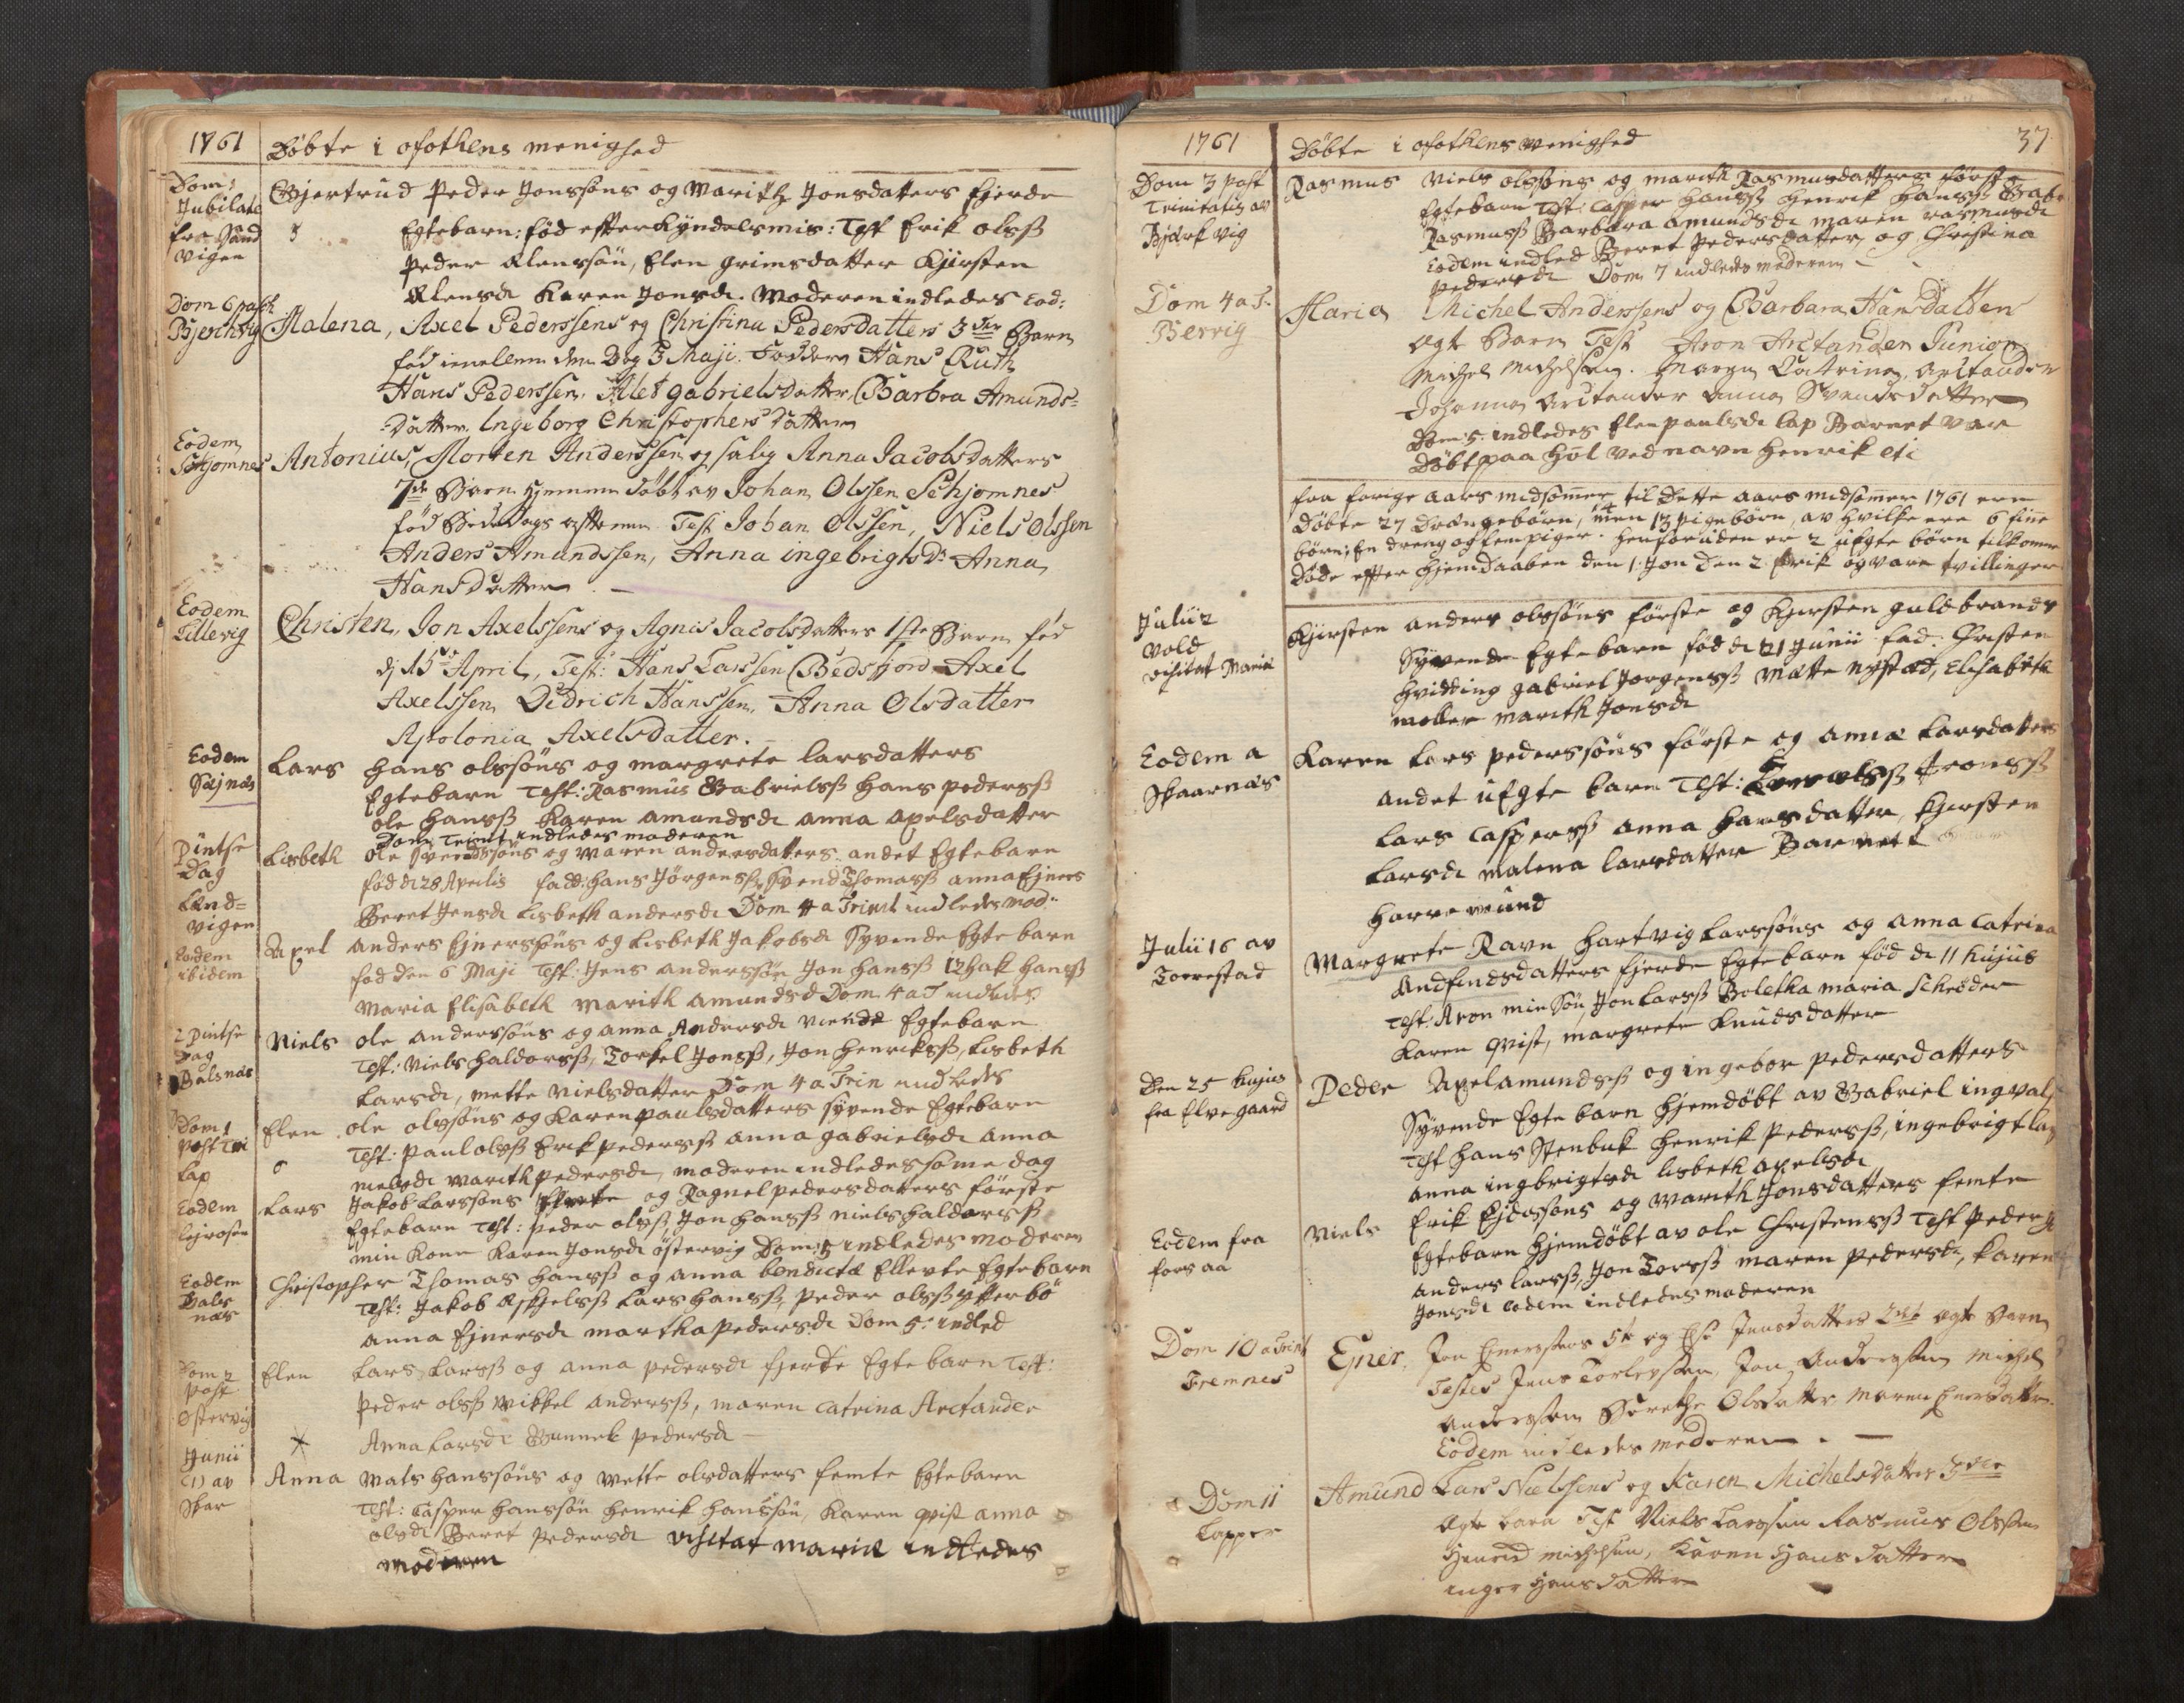 1761 Døbte i ofothens menighed
Dom: Jubilate fra Sand vigen
Gjertrud Peder Jonssøns og Marith Jonsdatters fjerde
Egtebarn: fød efter Kyndelsmis: Test Erik olsß
Peder Klenssøn, Elen grimsdatter Kjirsten
Klensd: Karen Jonsd:. Moderen indledes Eod:
Dom 6 pasch
Malena, Axel Pederssens og Christina Pedersdatters 3die Barn
fød imellem den og 3 Maji. Faddere Hans Ruth
Hans Pederssen, Alet gabrielsdatter, Barbra Amunds=
Datter, Ingeborg Christophersdatter
Eodem Schjomnes
Antonius, Morten Anderssen og salig Anna Jacobsdatters
7de Barn hjemme døbt av Johan Olssen Schjomnes
fød Test Johan Olssen, Niels Olssen
Anders Amundssen, Anna ingebrigtsD: Anna
Hansdatter
Eodem Lillevig
Christen, Jon Axelssens og Agnis Jacobsdatters 1ste Barn fød
d 15de April, Test: Hans Larssen Bedsfjord Axel
Axelssen, Dedrich Hanssen, Anna Olsdatter
Apolonia Axelsdatter.
Eodem
Lars hans olssøns og margrete larsdatters
Egtebarn Test: Rasmus Gabrielsß hans pedersß
ole hansß Karen amundsd: anna axelsdatter
Dom: Trinit: indledes moderen
Pintse Dag Land= vigen
Lisbeth ole Svendssøns og maren andersdatters andet Egtebarn
fød d: 28 Aprilis fadd: hans Jørgensß, Svend Thomasß anna Ejners
Beret Jensd: Lisbeth andersd: Dom 4 a Trinit indledes mod:
Eodem ibidem
Axel anders Ejnerssøns og Lisbeth Jakobsd: Syvende Egte barn
fød den 6 Maji Test: Jens anderssøn Jon hansß hansß
Maria Elisabeth marith amundsd Dom. 4 a T indledes
2 Pintse Dag Balsnæs
Niels ole anderssøns og anna Andersd: niende Egtebarn
Test: Niels haldorsß, Torkel Jonsß, Jon henriksß, Lisbeth
Larsd:, mette nielsdatter Dom 4 a Trin indledes
Dom 1 post Tri Lap
Elen ole olssøns og Karen paulsdatters syvende Egtebarn
Test: paul olsß Erik pedersß anna gabrielsd: anna
nielsd: marith pedersd:, moderen indledes same dag
Eodem
Lars Jakob Larssøns og Ragnel pedersdatters første
Egtebarn Test: peder olsß, Jon hansß niels haldorsß
min kone Karen Jonsd: østervig Dom: 5 indledes moderen
Eodem Bals næs
Christopher Thomas hansß og anna bendictæ Ellevte Egtebarn
Test: Jakob Lars hansß, peder olsß ytterbø
anna Ejnersd: martha pedersd: Dom 5: indled
Dom 2 post østervig
Elen Lars Larsß og anna pedersd: fjerde Egte barn Test:
peder olsß Mikkel andersß, maren Catrina Arctander
Anna Larsd: Gunnel pedersd:
Junii av Skar
Anna Mats hanssøns og mette olsdatters femte Egtebarn
Test: Casper hanssøn henrik hanssøn, Karen qvist anna
olsd: Beret pedersd: visitat mariæ indledes
moderen
1761 Døbte i ofothens menighed 37
Dom 3 post Trinitatis av Bjærkvig
Rasmus Niels olssøns og marith Rasmusdatters første
Egtebarn Test: Casper hansß henrik hansß
Rasmusß Barbara amundsd: maren rasmusd:
Eodem indled Beret pedersdatter, og Christina
pedersd: Dom 7 indledes moderen
Dom 4 a T. Berrig
Maria Michel Anderssens og Barbara Hansdatters
ægte Barn Test Aron Arctander Junior
Michel Michelsen. Maren Catrina Arctander
Johanna Arctander Anna Svendsdatter
Dom: 5. indledes Elen paulsd: lap Barnet var
døbt paa hol ved navn henrik etc
fra forige aars midsomer til dette aars midsomer 1761 ere
døbte 27 drængebørn, men 13 pigebørn, av hvilke ere 6 fine
børn; En dreng og fem piger. herforuden er 2 ufgte børn tilkomne
døde efter hjemdaaben den 1. Jon den 2. Erik og vare tvillinger
Julii 2 vold visitat Mariæ
Kjirsten anders olssøns første og Kjirsten guldbrands
Syvende Egtebarn fød d: 21 Junii fad. Christen
hvidding gabriel Jørgensß Mætte nystæd, Elisabeth
møller marith Jonsd:
Eodem a Skaarnæs
Karen Lars pederssøns første og annæ Larsdatters
andet uEgte barn Test: Aronsß
Lars Caspersß anna hansdatter, Kjersten
Larsd: malena larsdatter Barnet
Julii 16 av Toerestad
Margrete Ravn hartvig Larssøns og anna Catrina
Andfindsdatters fjerde Egtebarn fød d: 11 hujus
Test: Aron min Søn Jon Larsß Boletha maria Schrøder
Karen qvist, margrete knudsdatter
Den 25 hujus fra Elvegaard
Peder Axel amundsß og ingebor pedersdatters
Syvende Egte barn hjemdøbt av Gabriel ingvals
Test hans Stenbuk henrik pedersß, ingebrigt
anna ingbrigtsd: lisbeth axelsd:
Eodem fra forsaa
Niels Erik Ejdissøns og marith Jonsdatters femte
Egtebarn hjemdøbt av ole Christensß Test Peder
anders larsß, Jon Torsß maren pedersd:, Karen
Jonsd: eodem indledes moderen
Dom 10 a Trinit Fremnes
Ejner, Jon Enerssens 5te og Else Jensdatters 2det ægte Barn
Testes Jens Torlevssen, Jon Anderssen Michel
Anderssen Berethe Olsdatter Maren Enersdatter
Eodem indledes moderen.
Dom 11 Lapper
Amund Lars Nielssens og Karen Michelsdatters 3die
ægte barn Test Niels Larssen Rasmus Olssen
Michelsen, Karen Hansdatter
inger Hansdatter